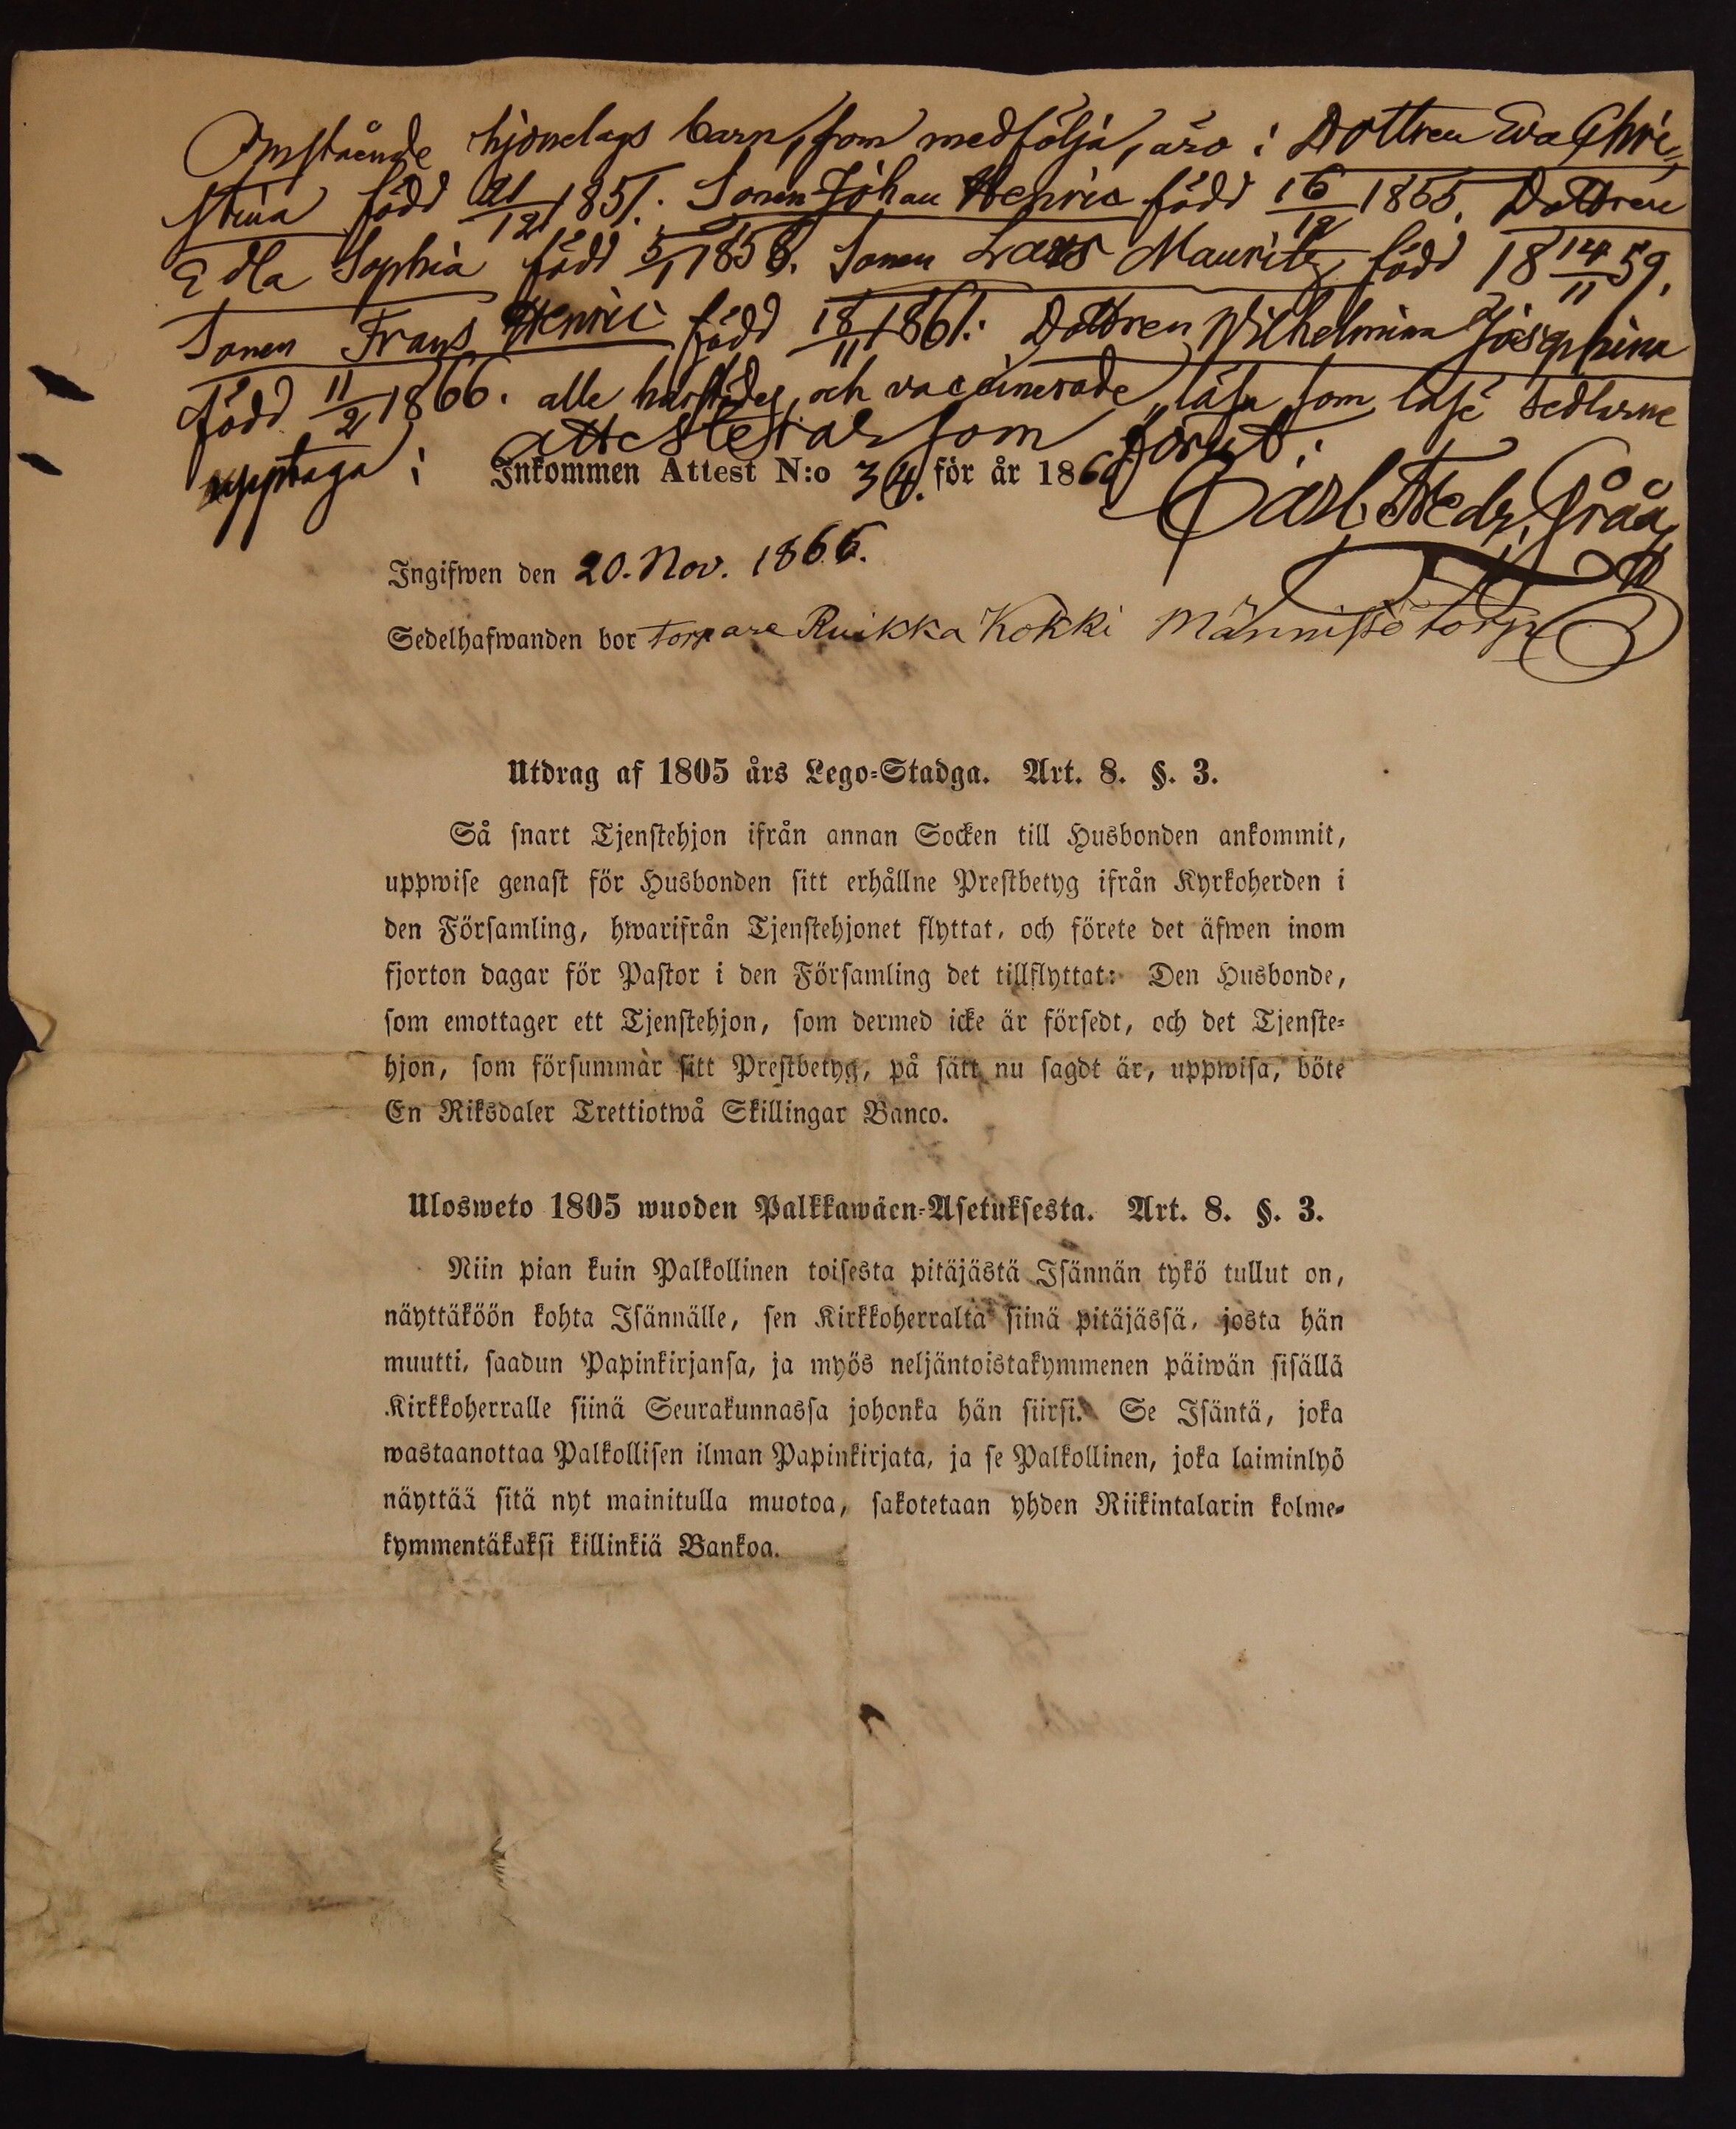 Omstående hjonelags barn, som medfölja, äro: Dottren Eva Chri-
stina född 21/12 1851. Sonen Johan Henric född 16/12 1855. Dottren
Edla Sophia född 5/1 1858. Sonen Lars Mauritz född 18 14/11 59.
Sonen Frans Henric född 18/11 1861. Dottren Wilhelmina Josephina
född 11/2 1866. alle härstädes och vaccinerade, läsa som läse sedlarne
upptaga; attesterar som förut:
Carl Fredr. Gråå
Inkommen Attest N:o 34. för år 1866
Ingifwen den 20. Nov. 1866.
Sedelhafwanden bor torpare Ruikka Kokki Männistö torp
Utdrag af 1805 års Lego-Stadga. Art. 8. §. 3.
Så snart Tjenstehjon ifrån annan Socken till Husbonden ankommit,
uppwise genast för Husbonden sitt erhållne Prestbetyg ifrån Kyrkoherden i
den Församling, hwarifrån Tjenstehjonet flyttat, och förete det äfwen inom
fjorton dagar för Pastor i den Församling det tillflyttat: Den Husbonde,
som emottager ett Tjenstehjon, som dermed icke är försedt, och det Tjenste-
hjon, som försummar sitt Prestbetyg, på sätt nu sagdt är, uppwisa, böte
En Riksdaler Trettiotwå Skillingar Banco.
Ulosweto 1805 wuoden Palkkawäen-Asetuksesta. Art. 8. §. 3.
Niin pian kuin Palkollinen toisesta pitäjästä Isännän tykö tullut on,
näyttäköön kohta Isännälle, sen Kirkkoherralta siinä pitäjässä, josta hän
muutti, saadun Papinkirjansa, ja myös neljäntoistakymmenen päiwän sisällä
Kirkkoherralle siinä Seurakunnassa johonka hän siirsi. Se Isäntä, joka
wastaanottaa Palkollisen ilman Papinkirjata, ja se Palkollinen, joka laiminlyö
näyttää sitä nyt mainitulla muotoa, sakotetaan yhden Riikintalarin kolme-
kymmentäkaksi killinkiä Bankoa.